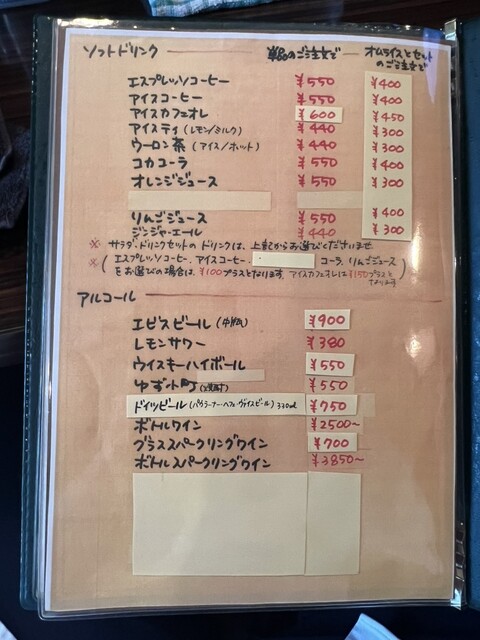 ソフトドリンク 単品のご注文で オムライスとセットのご注文で
エスプレッソコーヒー ¥550 ¥400
アイスコーヒー ¥550 ¥400
アイスカフェオレ ¥600 ¥450
アイスティ(レモン/ミルク) ¥440 ¥300
ウーロン茶(アイス/ホット) ¥440 ¥300
コカコーラ ¥550 ¥400
オレンジジュース ¥550 ¥300
りんごジュース ¥550 ¥400
ジンジャーエール ¥440 ¥300
※ サラダ、ドリンクセットのドリンクは、上記からお選びくださいませ
※(エスプレッソコーヒー、アイスコーヒー、 コーラ、りんごジュース
をお選びの場合は、¥100プラスとなります。アイスカフェオレは¥150プラスとなります)
アルコール
エビスビール(中瓶) ¥900
レモンサワー ¥380
ウイスキーハイボール ¥550
ゆず小町 ¥550
ドイツビール(パウラーナー・ヘフェ・ヴァイスビール) 330ml ¥750
ボトルワイン ¥2500〜
グラススパークリングワイン ¥700
ボトルスパークリングワイン ¥3850〜